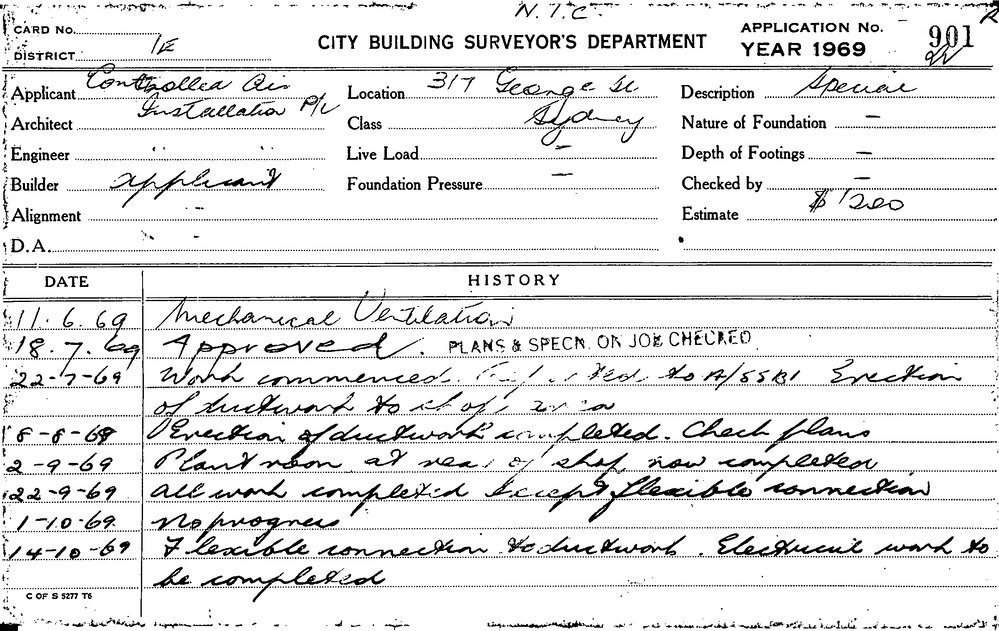 N.I.C.
CARD No.
DISTRICT 1E
CITY BUILDING SURVEYOR'S DEPARTMENT
APPLICATION No. 901
YEAR 1969
Applicant Controlled Air Installation P/L
Location 317 George St Sydney
Description Special
Architect
Class
Nature of Foundation —
Engineer " "
Live Load —
Depth of Footings —
Builder Applicant
Foundation Pressure —
Checked by —
Alignment -
Estimate $1200
D.A. -
DATE HISTORY
11.6.69 Mechanical Ventilation
18.7.69 Approved. PLANS & SPECN. ON JOB CHECKED
22-7-69 Work commenced. to A/SSBI Erection
of ductwork to shop
8-8-69 Erection of ductwork completed. Check plans
2-9-69 Plant room at rear of shop now completed
22-9-69 All work completed except flexible connection
1-10-69 No progress
14-10-69 Flexible connection to ductwork. Electrical work to
be completed
C OF S 5277 T6